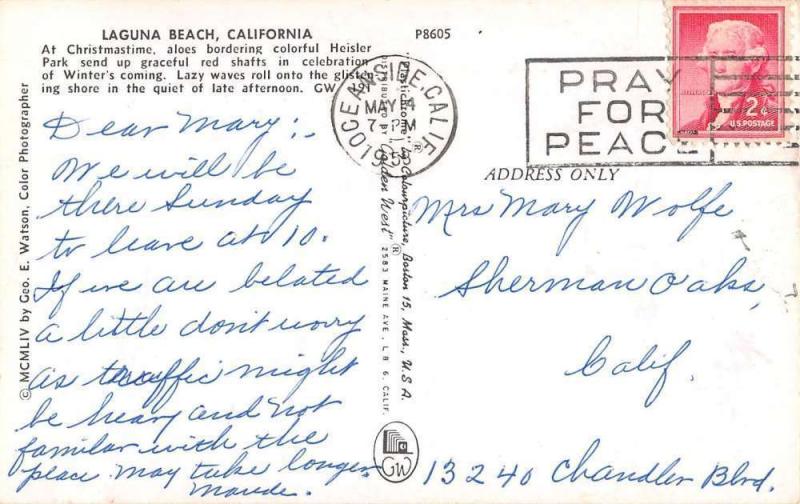 LAGUNA BEACH, CALIFORNIA
P8605
At Christmastime, aloes bordering colorful Heisler
Park send up graceful red shafts in celebration
of Winter's coming. Lazy waves roll onto the glisten-
ing shore in the quiet of late afternoon. GW
© MCMLIV by Geo. E. Watson, Color Photographer
Dear Mary:-
We will be
there Sunday
to leave at 10.
If we are belated
a little don't worry
as traffic might
be heavy and not
familiar with the
place may take longer.
Maude.
"Plastichrome" ® by Colourpicture, Boston 15, Mass., U.S.A.
DISTRIBUTED BY "Golden West" ®
2583 MAINE AVE., L B 6, CALIF.
GW
OCEANSIDE, CALIF.
MAY 4
7-PM
PRAY
FOR
PEACE
2¢
U.S. POSTAGE
ADDRESS ONLY
Mrs Mary Wolfe
Sherman Oaks,
Calif.
13240 Chandler Blvd.